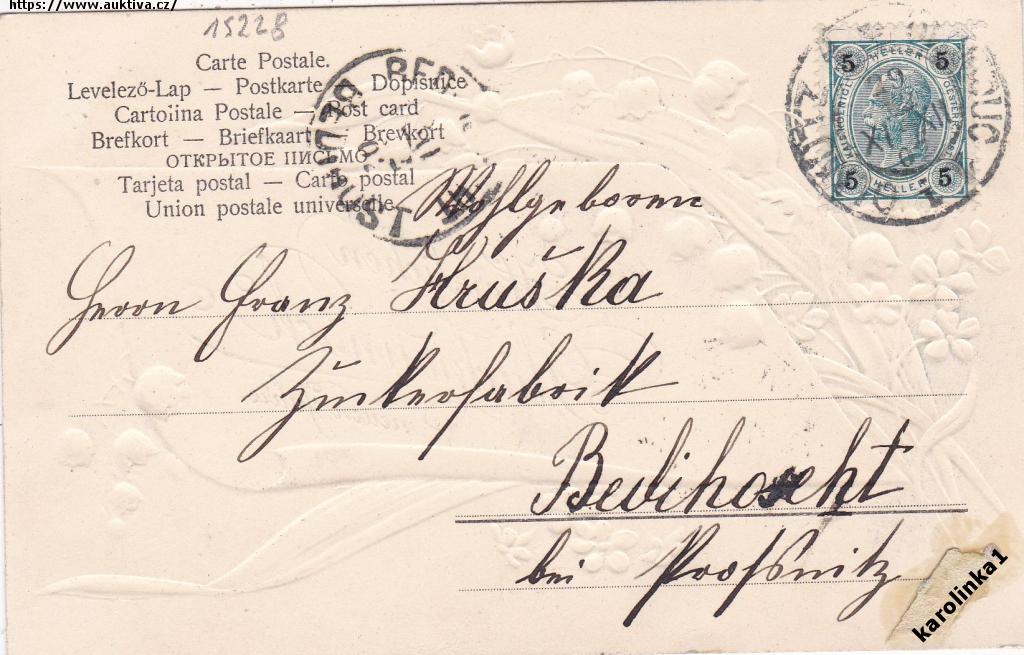 https://www.auktiva.cz/
15228
Carte Postale.
Levelező-Lap — Postkarte — Dopisnice
Cartolina Postale — Post card
Brefkort — Briefkaart — Brevkort
ОТКРЫТОЕ ПИСЬМО
Tarjeta postal — Carta postal
Union postale universelle
5 HELLER 5
5 HELLER 5
Wohlgeboren
Herrn Franz Hruška
Zuckerfabrik
Bedihoscht
bei Prossnitz
karolinka1